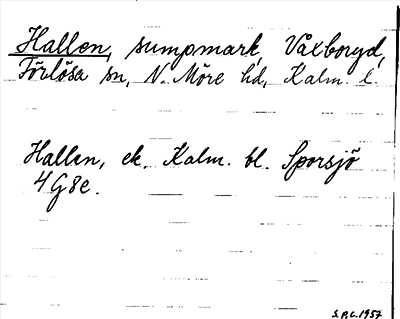 Hallen, sumpmark, Våxboryd,
Förlösa sn, N. Möre hd, Kalm. l.
Hallen, ek. Kalm. bl. Sporsjö
4G8e.
S.P.C. 1957